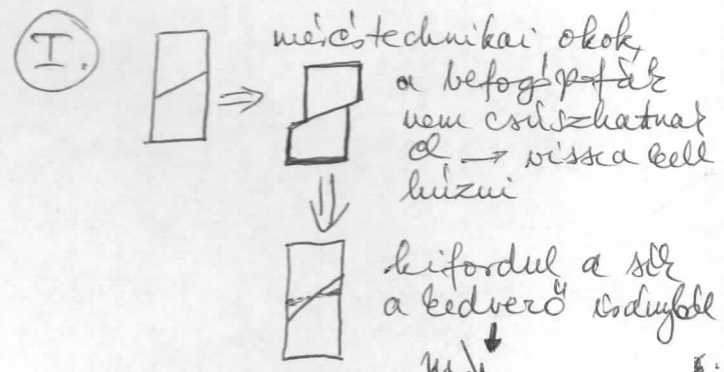 I.
méréstechnikai okok,
a befogópofák
nem csúszhatnak
el → vissza kell
húzni
kifordul a sík
a kedvező irányból